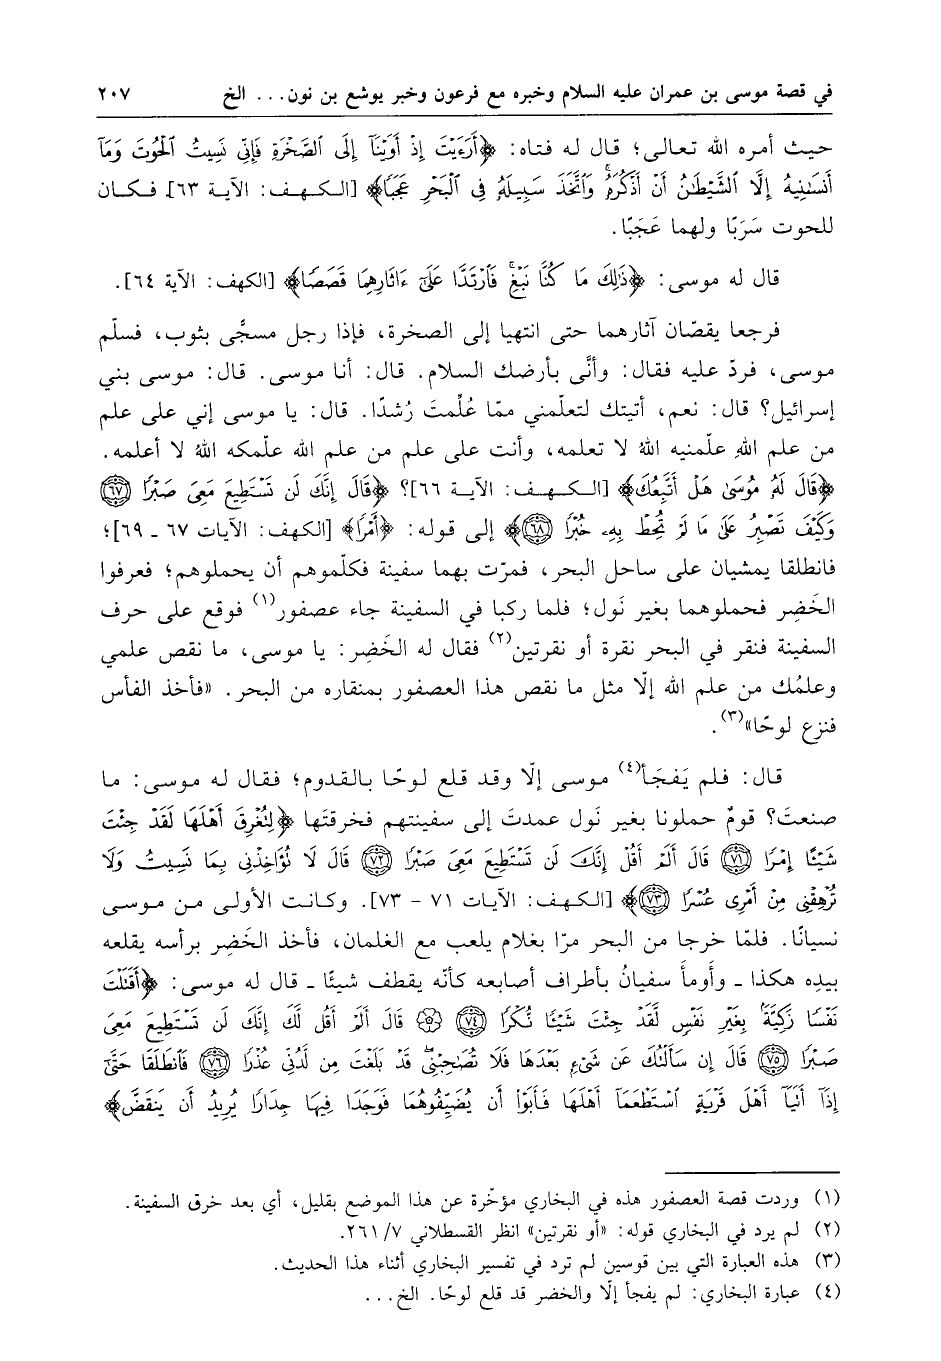 في قصة موسى بن عمران عليه السلام وخبره مع فرعون وخبر يوشع بن نون... الخ ٢٠٧
حيث أمره الله تعالى؛ قال له فتاه: ﴿أَرَءَيْتَ إِذْ أَوَيْنَآ إِلَى ٱلصَّخْرَةِ فَإِنِّى نَسِيتُ ٱلْحُوتَ وَمَآ
أَنسَىٰنِيهُ إِلَّا ٱلشَّيْطَٰنُ أَنْ أَذْكُرَهُۥۚ وَٱتَّخَذَ سَبِيلَهُۥ فِى ٱلْبَحْرِ عَجَبًا﴾ [الكهف: الآية ٦٣]. فكان
للحوت سَرَبًا ولهما عَجَبًا.
قال له موسى: ﴿ذَٰلِكَ مَا كُنَّا نَبْغِۚ فَٱرْتَدَّا عَلَىٰٓ ءَاثَارِهِمَا قَصَصًا﴾ [الكهف: الآية ٦٤].
فرجعا يقصّان آثارهما حتى انتهيا إلى الصخرة، فإذا رجل مسجًّى بثوب، فسلّم
موسى، فردّ عليه فقال: وأنَّى بأرضك السلام. قال: أنا موسى. قال: موسى بني
إسرائيل؟ قال: نعم، أتيتك لتعلّمني ممّا عُلِّمتَ رُشدًا. قال: يا موسى إني على علم
من علم اللهِ علّمنيه اللهُ لا تعلمه، وأنت على علم من علم الله علّمكه اللهُ لا أعلمه.
﴿قَالَ لَهُۥ مُوسَىٰ هَلْ أَتَّبِعُكَ﴾ [الكهف: الآية ٦٦]؟ ﴿قَالَ إِنَّكَ لَن تَسْتَطِيعَ مَعِىَ صَبْرًا ٦٧
وَكَيْفَ تَصْبِرُ عَلَىٰ مَا لَمْ تُحِطْ بِهِۦ خُبْرًا ٦٨﴾ إلى قوله: ﴿أَمْرًا﴾ [الكهف: الآيات ٦٧ ـ ٦٩]؛
فانطلقا يمشيان على ساحل البحر، فمرّت بهما سفينة فكلّموهم أن يحملوهم؛ فعرفوا
الخَضِر فحملوهما بغير نَول؛ فلما ركبا في السفينة جاء عصفور(١) فوقع على حرف
السفينة فنقر في البحر نقرة أو نقرتين(٢) فقال له الخَضِر: يا موسى، ما نقص علمي
وعلمُك من علم الله إلّا مثل ما نقص هذا العصفور بمنقاره من البحر. «فأخذ الفأس
فنزع لوحًا»(٣).
قال: فلم يَفجَأ(٤) موسى إلّا وقد قلع لوحًا بالقدوم؛ فقال له موسى: ما
صنعتَ؟ قومٌ حملونا بغير نَول عمدتَ إلى سفينتهم فخرقتَها ﴿لِتُغْرِقَ أَهْلَهَا لَقَدْ جِئْتَ
شَيْـًٔا إِمْرًا ٧١ قَالَ أَلَمْ أَقُلْ إِنَّكَ لَن تَسْتَطِيعَ مَعِىَ صَبْرًا ٧٢ قَالَ لَا تُؤَاخِذْنِى بِمَا نَسِيتُ وَلَا
تُرْهِقْنِى مِنْ أَمْرِى عُسْرًا ٧٣﴾ [الكهف: الآيات ٧١ - ٧٣]. وكانت الأولى من موسى
نسيانًا. فلمّا خرجا من البحر مرّا بغلام يلعب مع الغلمان، فأخذ الخَضِر برأسه يقلعه
بيدِه هكذا ـ وأَومأَ سفيانُ بأطراف أصابعه كأنّه يقطف شيئًا ـ قال له موسى: ﴿أَقَتَلْتَ
نَفْسًا زَكِيَّةًۢ بِغَيْرِ نَفْسٍ لَّقَدْ جِئْتَ شَيْـًٔا نُّكْرًا ٧٤ قَالَ أَلَمْ أَقُل لَّكَ إِنَّكَ لَن تَسْتَطِيعَ مَعِىَ
صَبْرًا ٧٥ قَالَ إِن سَأَلْتُكَ عَن شَىْءٍۭ بَعْدَهَا فَلَا تُصَٰحِبْنِىۖ قَدْ بَلَغْتَ مِن لَّدُنِّى عُذْرًا ٧٦ فَٱنطَلَقَا حَتَّىٰٓ
إِذَآ أَتَيَآ أَهْلَ قَرْيَةٍ ٱسْتَطْعَمَآ أَهْلَهَا فَأَبَوْا۟ أَن يُضَيِّفُوهُمَا فَوَجَدَا فِيهَا جِدَارًا يُرِيدُ أَن يَنقَضَّ﴾
(١) وردت قصة العصفور هذه في البخاري مؤخّرة عن هذا الموضع بقليل، أي بعد خرق السفينة.
(٢) لم يرد في البخاري قوله: «أو نقرتين» انظر القسطلاني ٧/ ٢٦١.
(٣) هذه العبارة التي بين قوسين لم ترد في تفسير البخاري أثناء هذا الحديث.
(٤) عبارة البخاري: لم يفجأ إلّا والخضر قد قلع لوحًا. الخ...